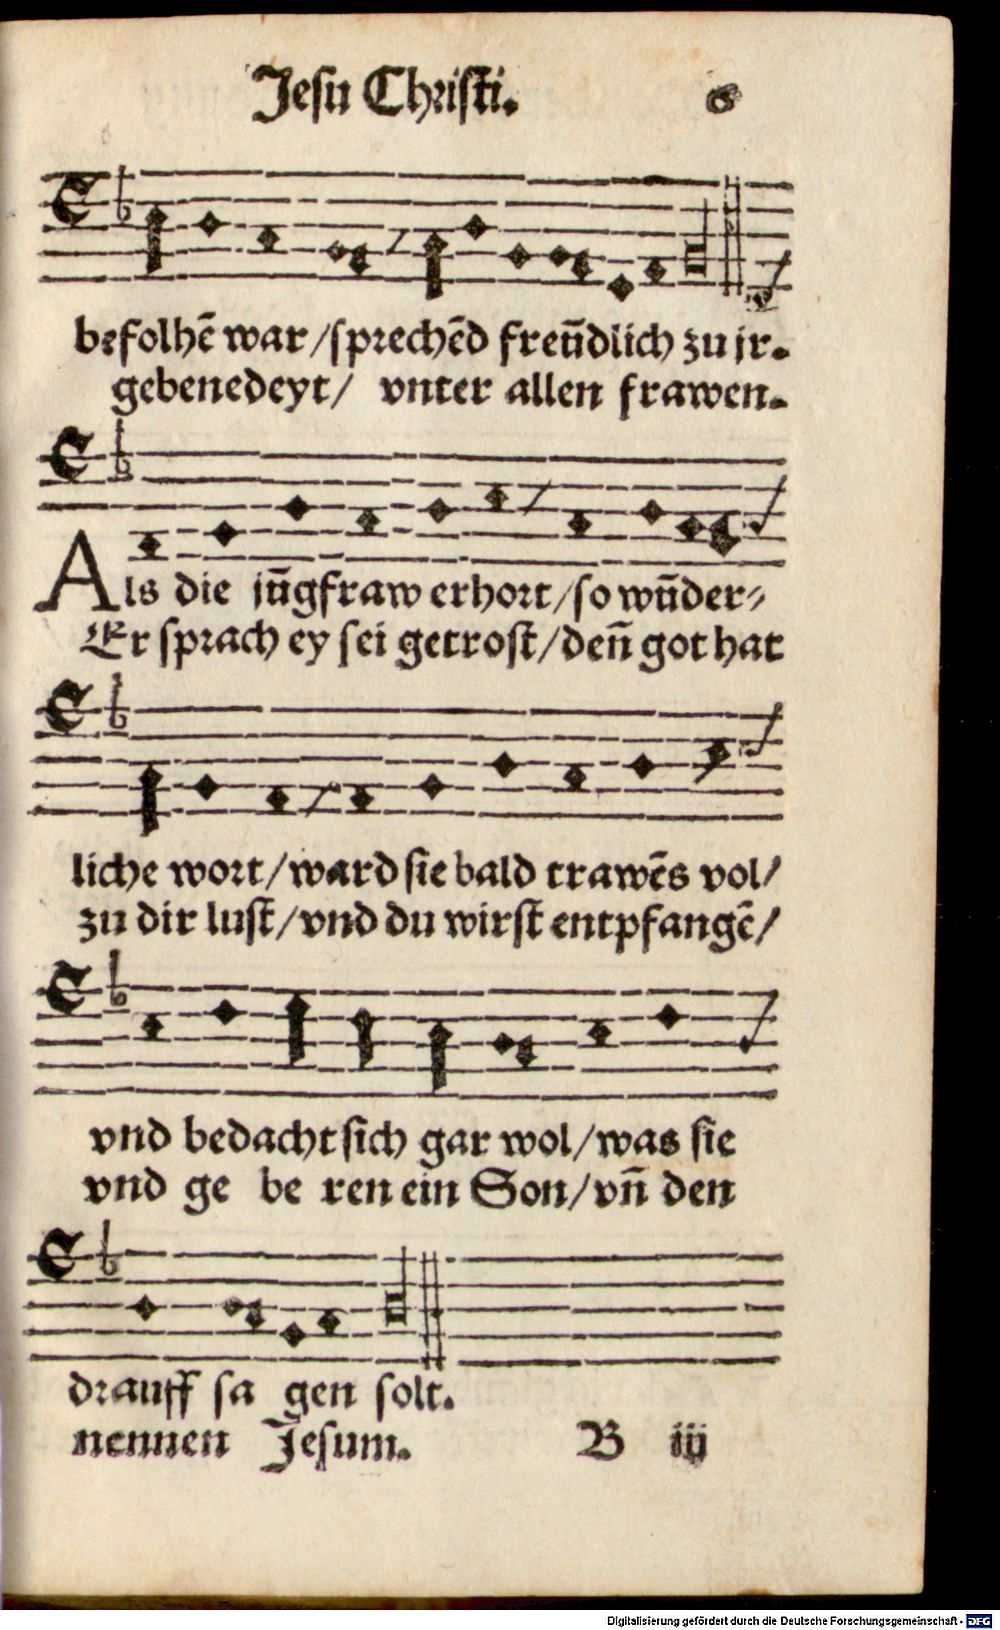 Jesu Christi. 6
befolhē war/sprechēd freūdlich zu jr.
gebenedeyt/ vnter allen frawen.
Als die jūgfraw erhort/so wūder⸗
Er sprach ey sei getrost/deñ got hat
liche wort/ward sie bald trawēs vol/
zu dir lust/vnd du wirst entpfangē/
vnd bedacht sich gar wol/was sie
vnd ge be ren ein Son/vñ den
drauff sa gen solt.
nennen Jesum. B iij
Digitalisierung gefördert durch die Deutsche Forschungsgemeinschaft - DFG